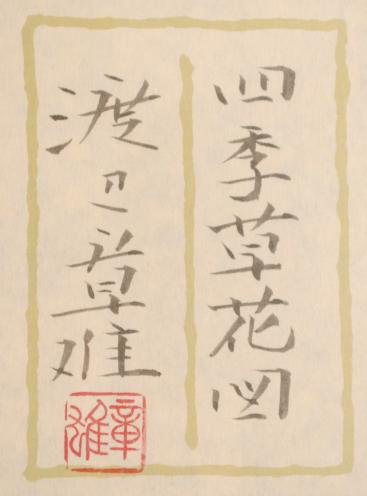 四季草花図
渡辺章雄
章雄